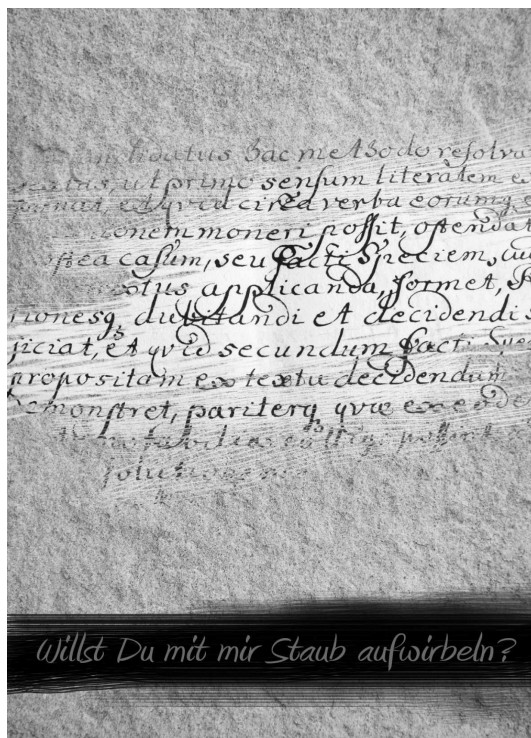 candidatus hac methodo resolva
ut primo sensum literalem e
et quid circa verba eorumq e
onem moneri possit, ostendat
ostea casum, seu facti speciem, cu
applicanda, formet,
tionesq; dubitandi et decidendi
jiciat, et quid secundum facti spe
propositam ex textu decidendum
emonstret, pariterq quæ ex eode
Willst Du mit mir Staub aufwirbeln?